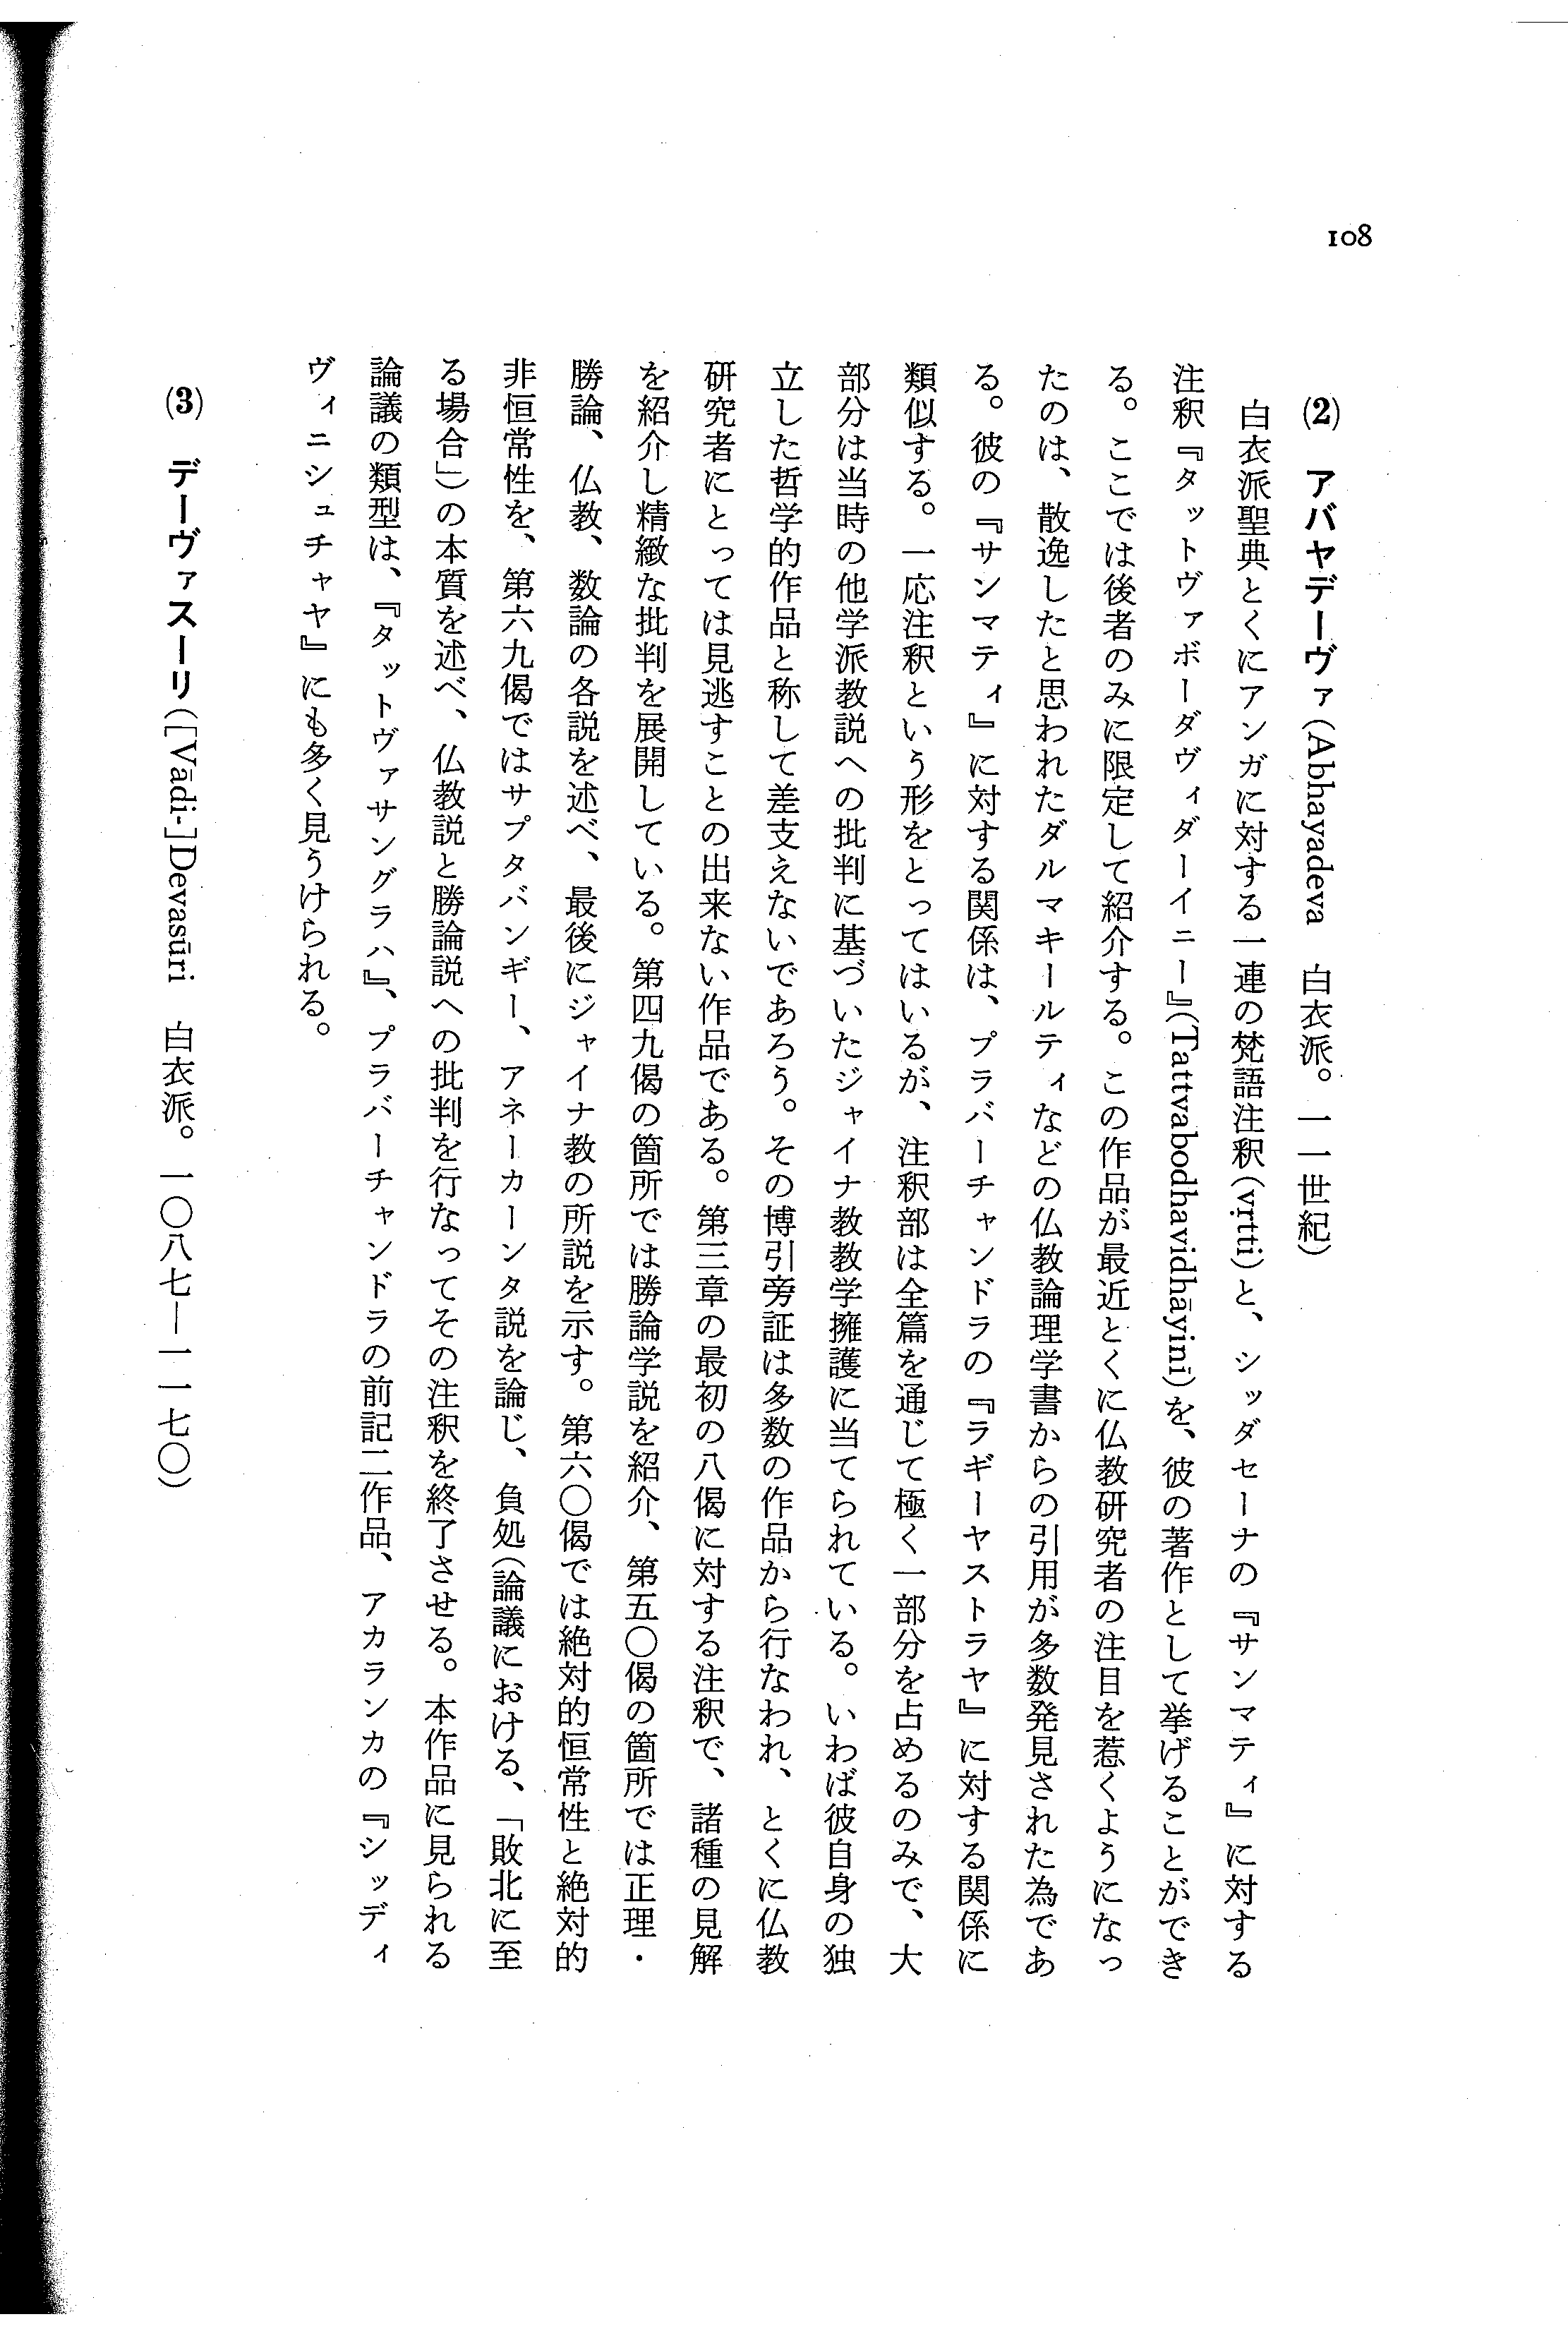 108
(2) アバヤデーヴァ(Abhayadeva 白衣派。一一世紀)
白衣派聖典とくにアンガに対する一連の梵語注釈(vṛtti)と、シッダセーナの『サンマティ』に対する
注釈『タットヴァボーダヴィダーイニー』(Tattvabodhavidhāyinī)を、彼の著作として挙げることができ
る。ここでは後者のみに限定して紹介する。この作品が最近とくに仏教研究者の注目を惹くようになっ
たのは、散逸したと思われたダルマキールティなどの仏教論理学書からの引用が多数発見された為であ
る。彼の『サンマティ』に対する関係は、プラバーチャンドラの『ラギーヤストラヤ』に対する関係に
類似する。一応注釈という形をとってはいるが、注釈部は全篇を通じて極く一部分を占めるのみで、大
部分は当時の他学派教説への批判に基づいたジャイナ教教学擁護に当てられている。いわば彼自身の独
立した哲学的作品と称して差支えないであろう。その博引旁証は多数の作品から行なわれ、とくに仏教
研究者にとっては見逃すことの出来ない作品である。第三章の最初の八偈に対する注釈で、諸種の見解
を紹介し精緻な批判を展開している。第四九偈の箇所では勝論学説を紹介、第五〇偈の箇所では正理・
勝論、仏教、数論の各説を述べ、最後にジャイナ教の所説を示す。第六〇偈では絶対的恒常性と絶対的
非恒常性を、第六九偈ではサプタバンギー、アネーカーンタ説を論じ、負処(論議における、「敗北に至
る場合」)の本質を述べ、仏教説と勝論説への批判を行なってその注釈を終了させる。本作品に見られる
論議の類型は、『タットヴァサングラハ』、プラバーチャンドラの前記二作品、アカランカの『シッディ
ヴィニシュチャヤ』にも多く見うけられる。
(3) デーヴァスーリ([Vādi-]Devasūri 白衣派。一〇八七―一一七〇)